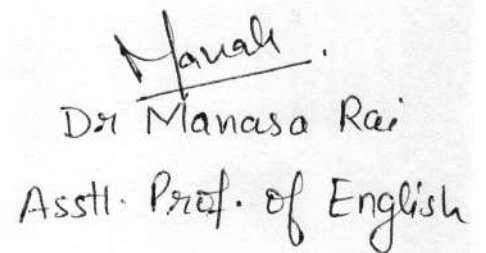 Dr Manasa Rai
Asstt. Prof. of English